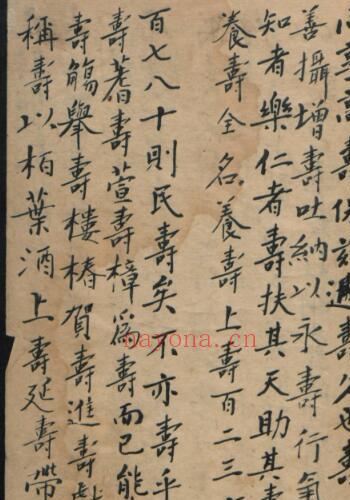 享高壽
善攝增壽吐納以永壽行氣
知者樂仁者壽扶其天助其壽
養壽全名養壽上壽百二三
百七八十則民壽矣不亦壽乎
壽蓍壽萱壽樟爲壽而已能
壽觴舉壽樓椿賀壽進壽
稱壽以柏葉酒上壽延壽帶
nayona.cn